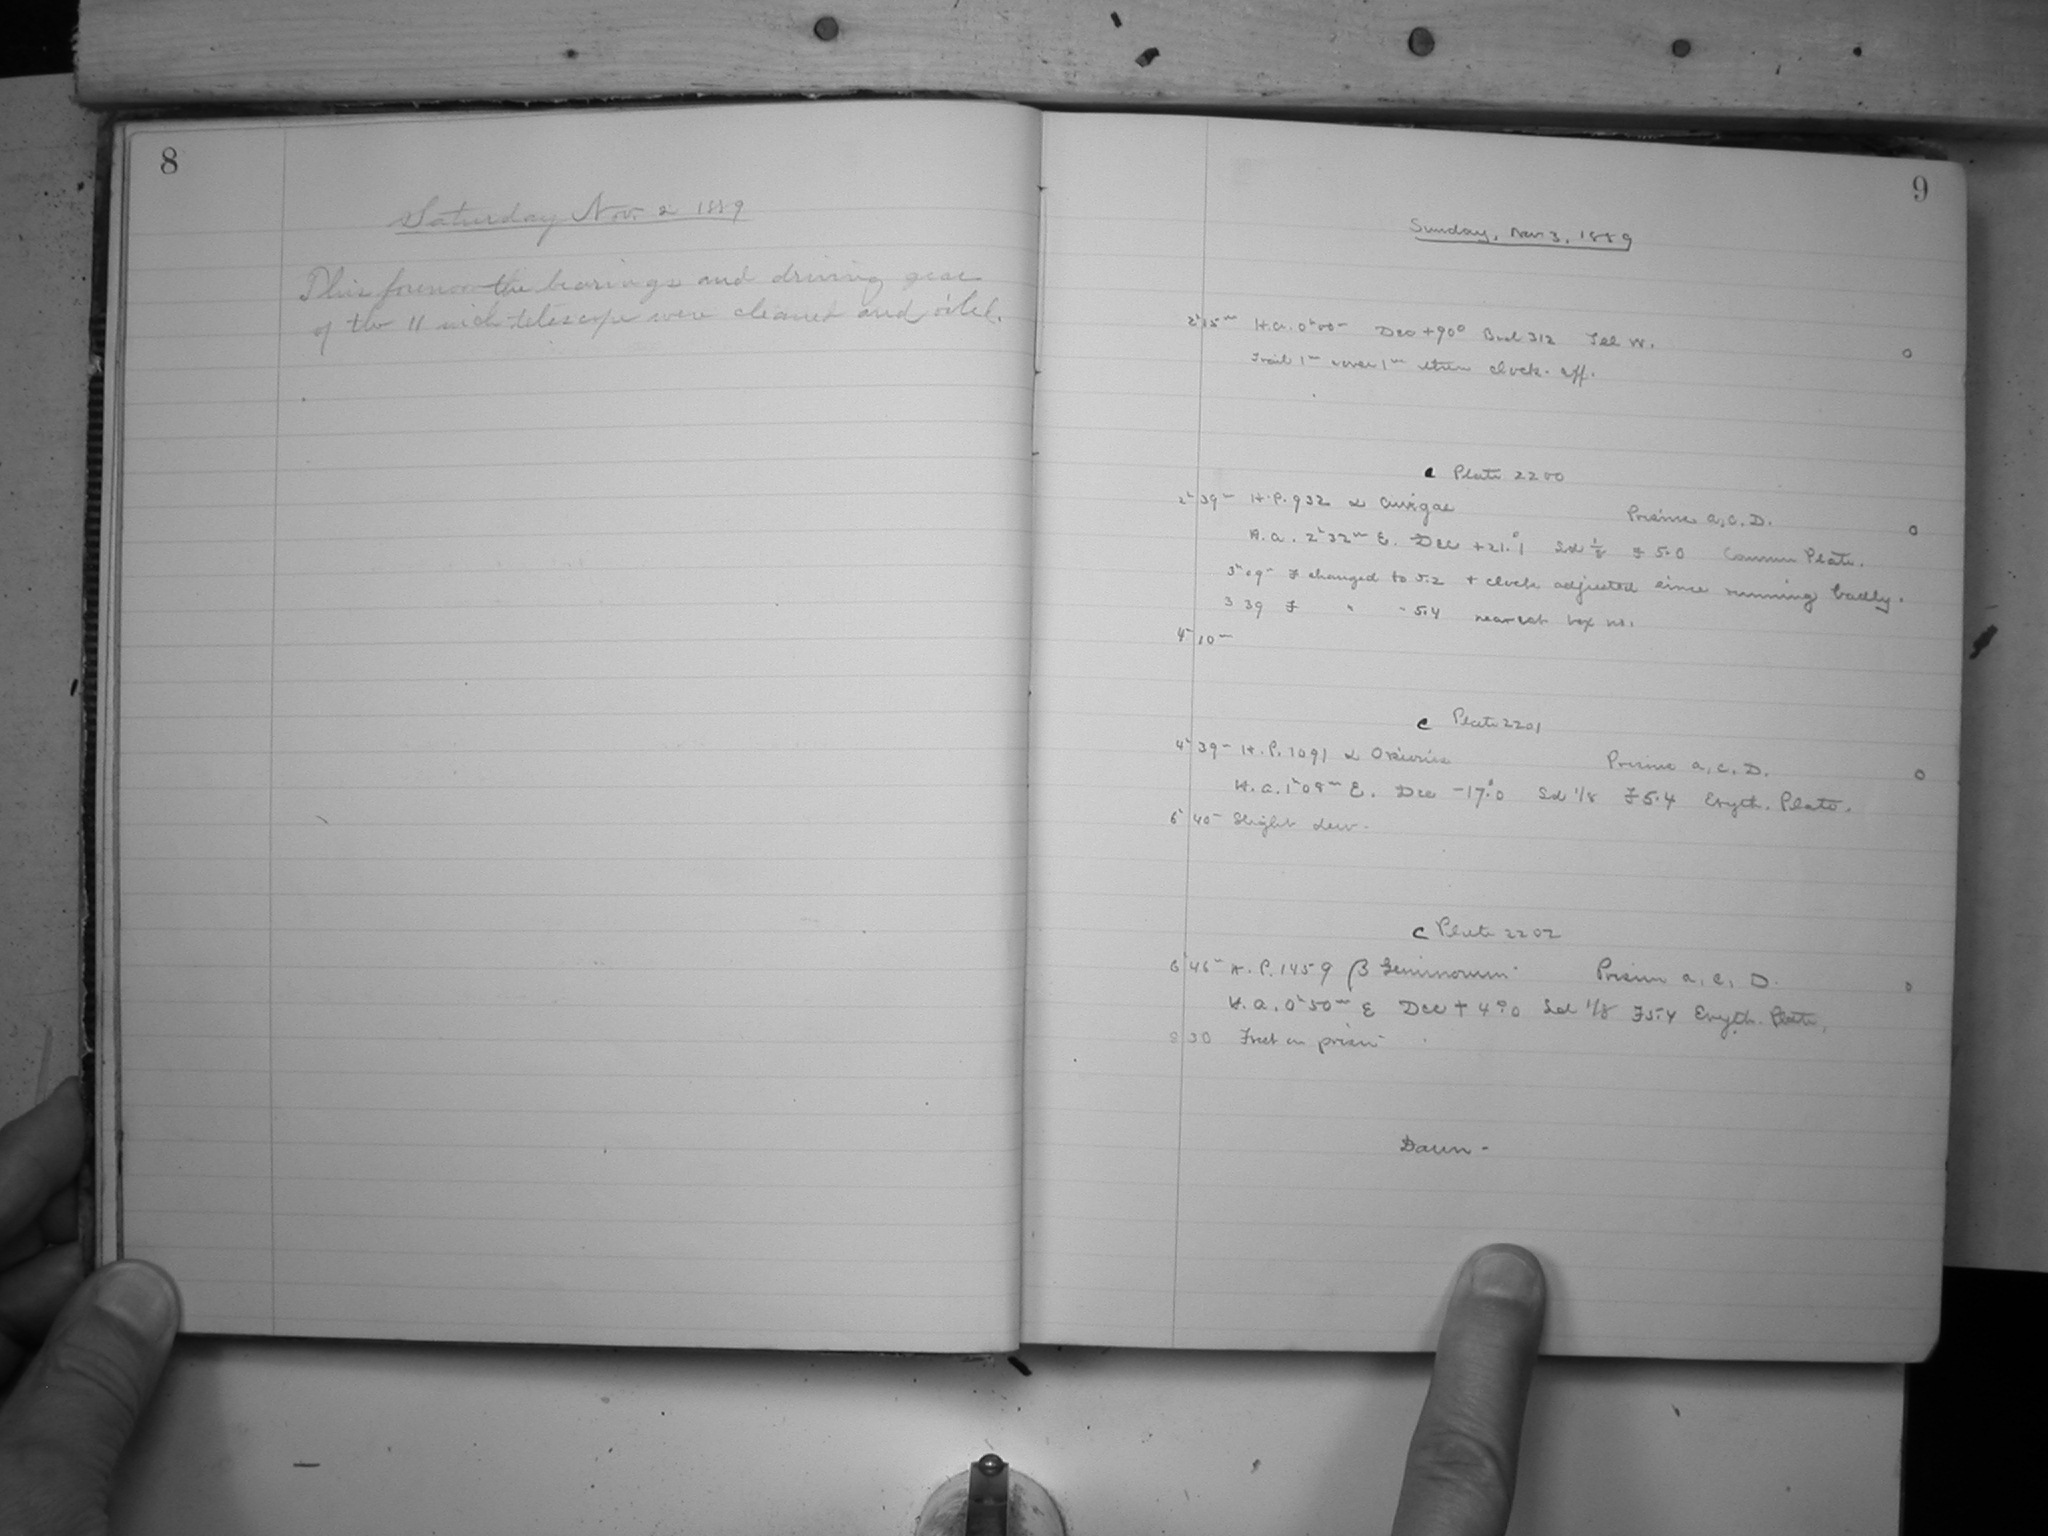 8
Saturday Nov. 2 1889
This forenoon the bearings and driving gear
of the 11 inch telescope were cleaned and oiled.
9
Sunday, Nov 3, 1889
2h 15m H.a. 0h00m Dec +90° 312 Tel W. 0
Trail 1m 1m then clock off.
c Plate 2200
2h 39m H.P. 932 α Aurigae Prisms a, c, D. 0
H.a. 2h32m E. Dec +21.°1 Sd 1/8 F 5.0 Common Plate.
3h09m F changed to 5.2 + clock adjusted since running badly.
3 39 F " " 5.4 nearest box no.
4h 10m
c Plate 2201
4h 39m H.P. 1091 α Orionis Prisms a, c, D. 0
H.a. 1h08m E. Dec -17.°0 Sd 1/8 F 5.4 Eryth. Plate.
6h 40m Slight dew.
c Plate 2202
6h 46m H.P. 1459 β Geminorum Prisms a, c, D. 0
H.a. 0h50m E Dec + 4.°0 Sd 1/8 F 5.4 Eryth. Plate.
8 30 Frost on prism
Dawn -